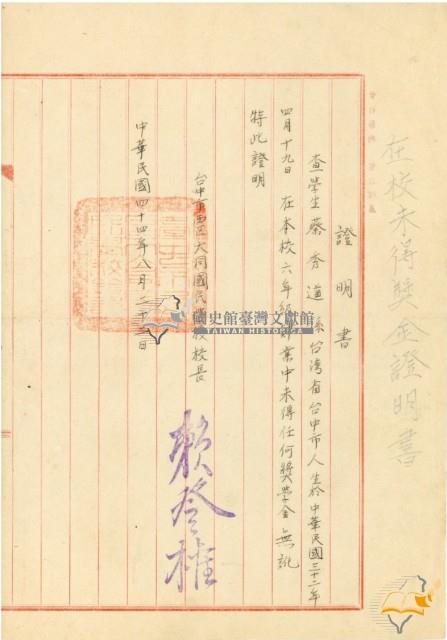 在校未得獎金證明書
證明書
查學生蔡秀道係台灣省台中市人生於中華民國三十二年
四月十九日在本校六年級畢業中未得任何獎學金無訛
特此證明
台中市西區大同國民學校校長
賴登樁
中華民國四十四年八月二十
日
國史館臺灣文獻館
TAIWAN HISTORICA